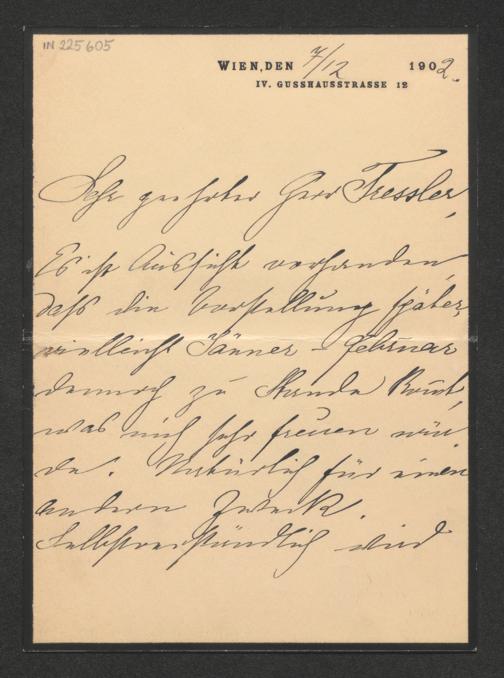 IN 225605
WIEN, DEN 7/12 1902.
IV. GUSSHAUSSTRASSE 12
Sehr geehrter Herr Tressler,
Es ist Aussicht vorhanden,
daß die Vorstellung später,
vielleicht Jänner – Februar
dennoch zu Stande komt,
was mich sehr freuen wür
de. Natürlich für einen
andern Zweck.
Selbstverständlich wird